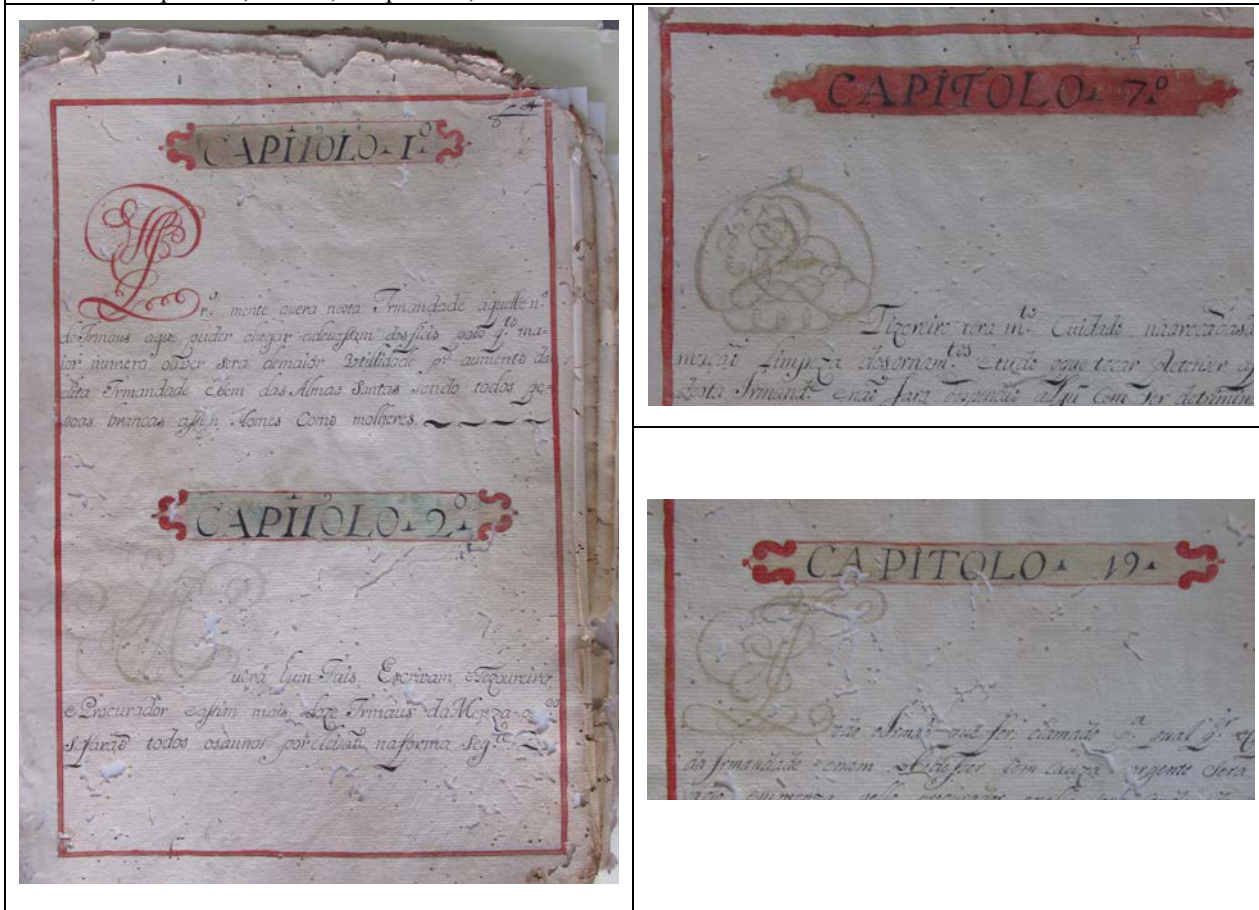 CAPÎTOLO. I.º
r.º mente avera nesta Irmandade aquelle n.º
de Irmaus aque puder chegar edevassam dos fieis pois q.to ma-
ior numero ouver sera demaior Utillidade p.ª aumento da
dita Irmandade Ebem das Almas Santas sendo todos pe-
ssoas brancas assim Homes Como molheres.
CAPÎTOLO. 2.º
uera hum Juis, Escrivam, eTezoureiro,
eProcurador eassim mais doze Irmaus da Meza
sefaraõ todos osannos poreleicaõ naforma Seg.te
CAPÎTOLO. 7.º
Tizoreiro tera m.to Cuidado naarecadasa
limpeza dosornam.tos Etudo oque tocar
desta Irmand.e enaõ fara despendio alçũ Com Ser detrimen
CAPÎTOLO. 19.
odo oIrmaõ que for chamado p.ª qual q.r
da Irmandade enam Com cauza urgente Sera
procurador